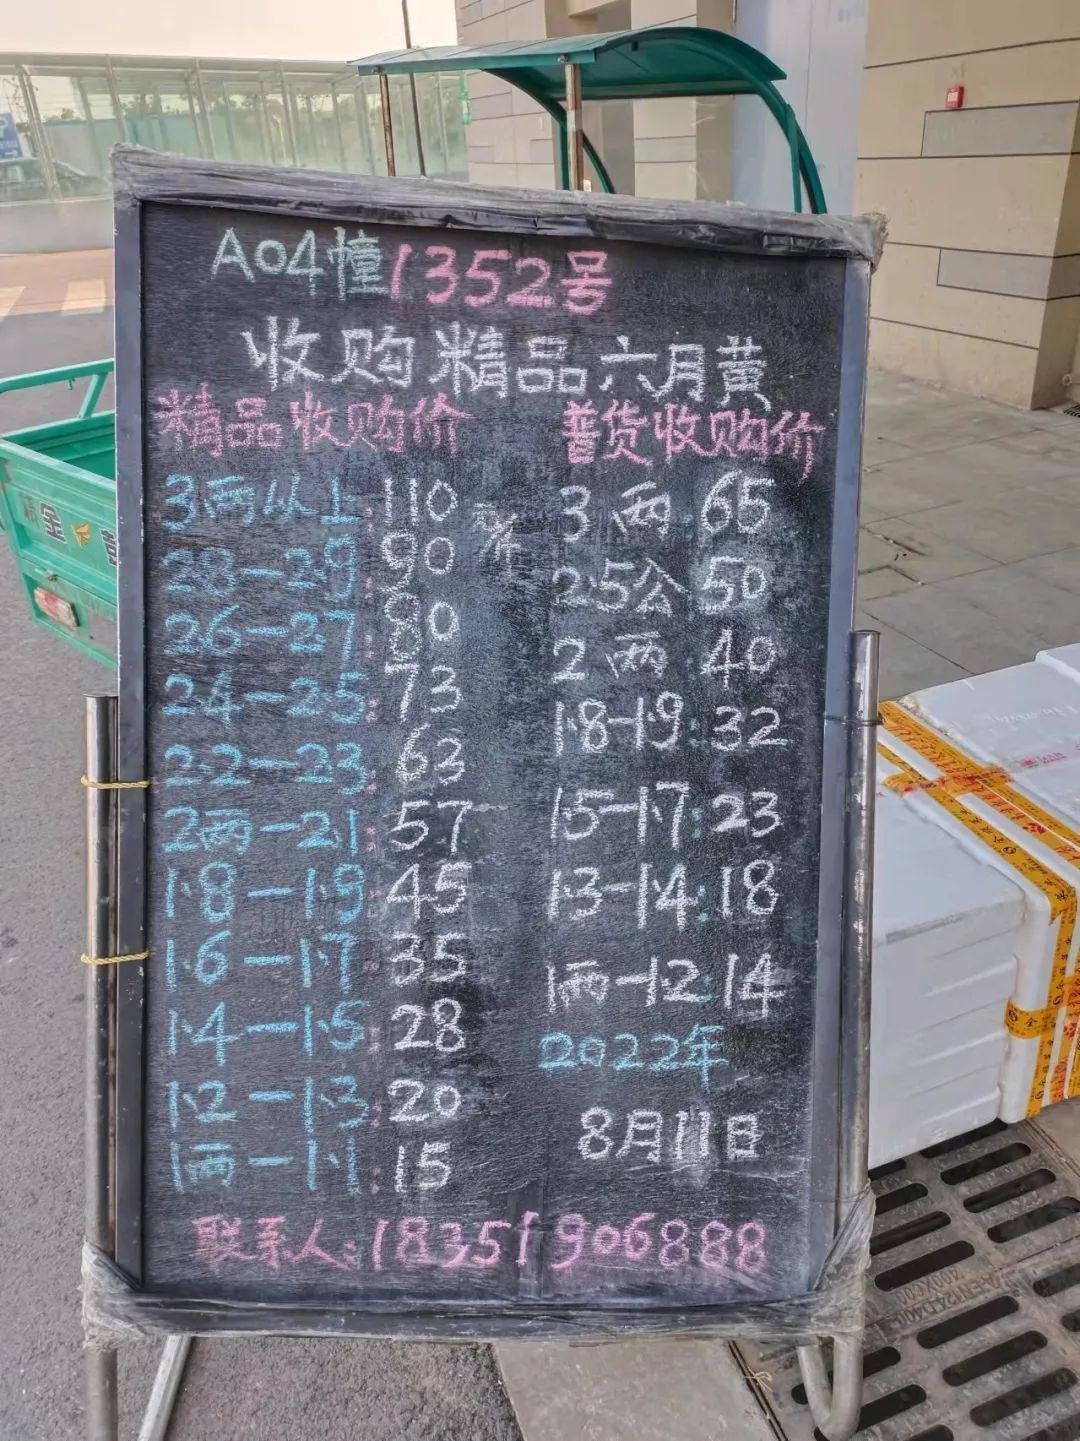 A04幢1352号
收购精品六月黄
精品收购价
3两以上:110元/斤
28-29:90
26-27:80
24-25:73
22-23:63
2两-21:57
1.8-1.9:45
1.6-1.7:35
1.4-1.5:28
1.2-1.3:20
1两-1.1:15
普货收购价
3两:65
2.5公:50
2两:40
1.8-1.9:32
1.5-1.7:23
1.3-1.4:18
1两-1.2:14
2022年
8月11日
联系人:18351906888